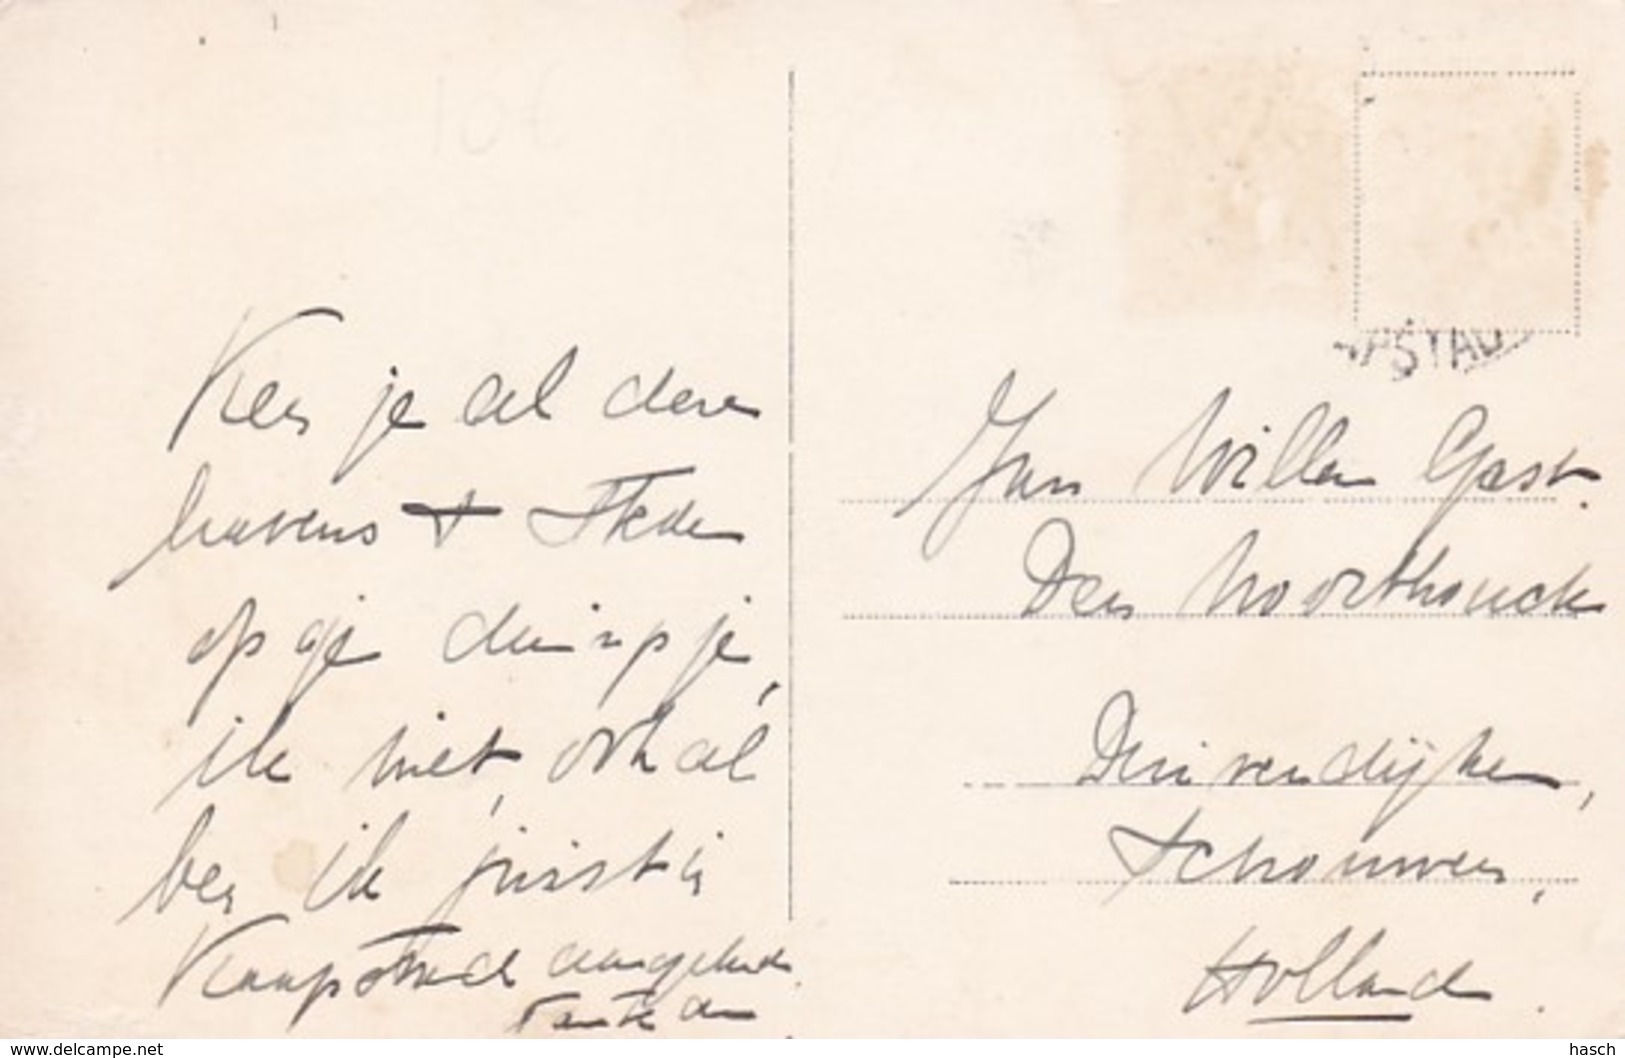 10€
Ken je al deze
havens + steden
op je duimpje,
ik niet, ook al
ben ik juist in
Kaapstad aangeland.
Tante
APSTAD
Jan Willem Gast.
Den Noorthouck
Druivendijke,
Schouwen,
Holland.
www.delcampe.net
hasch